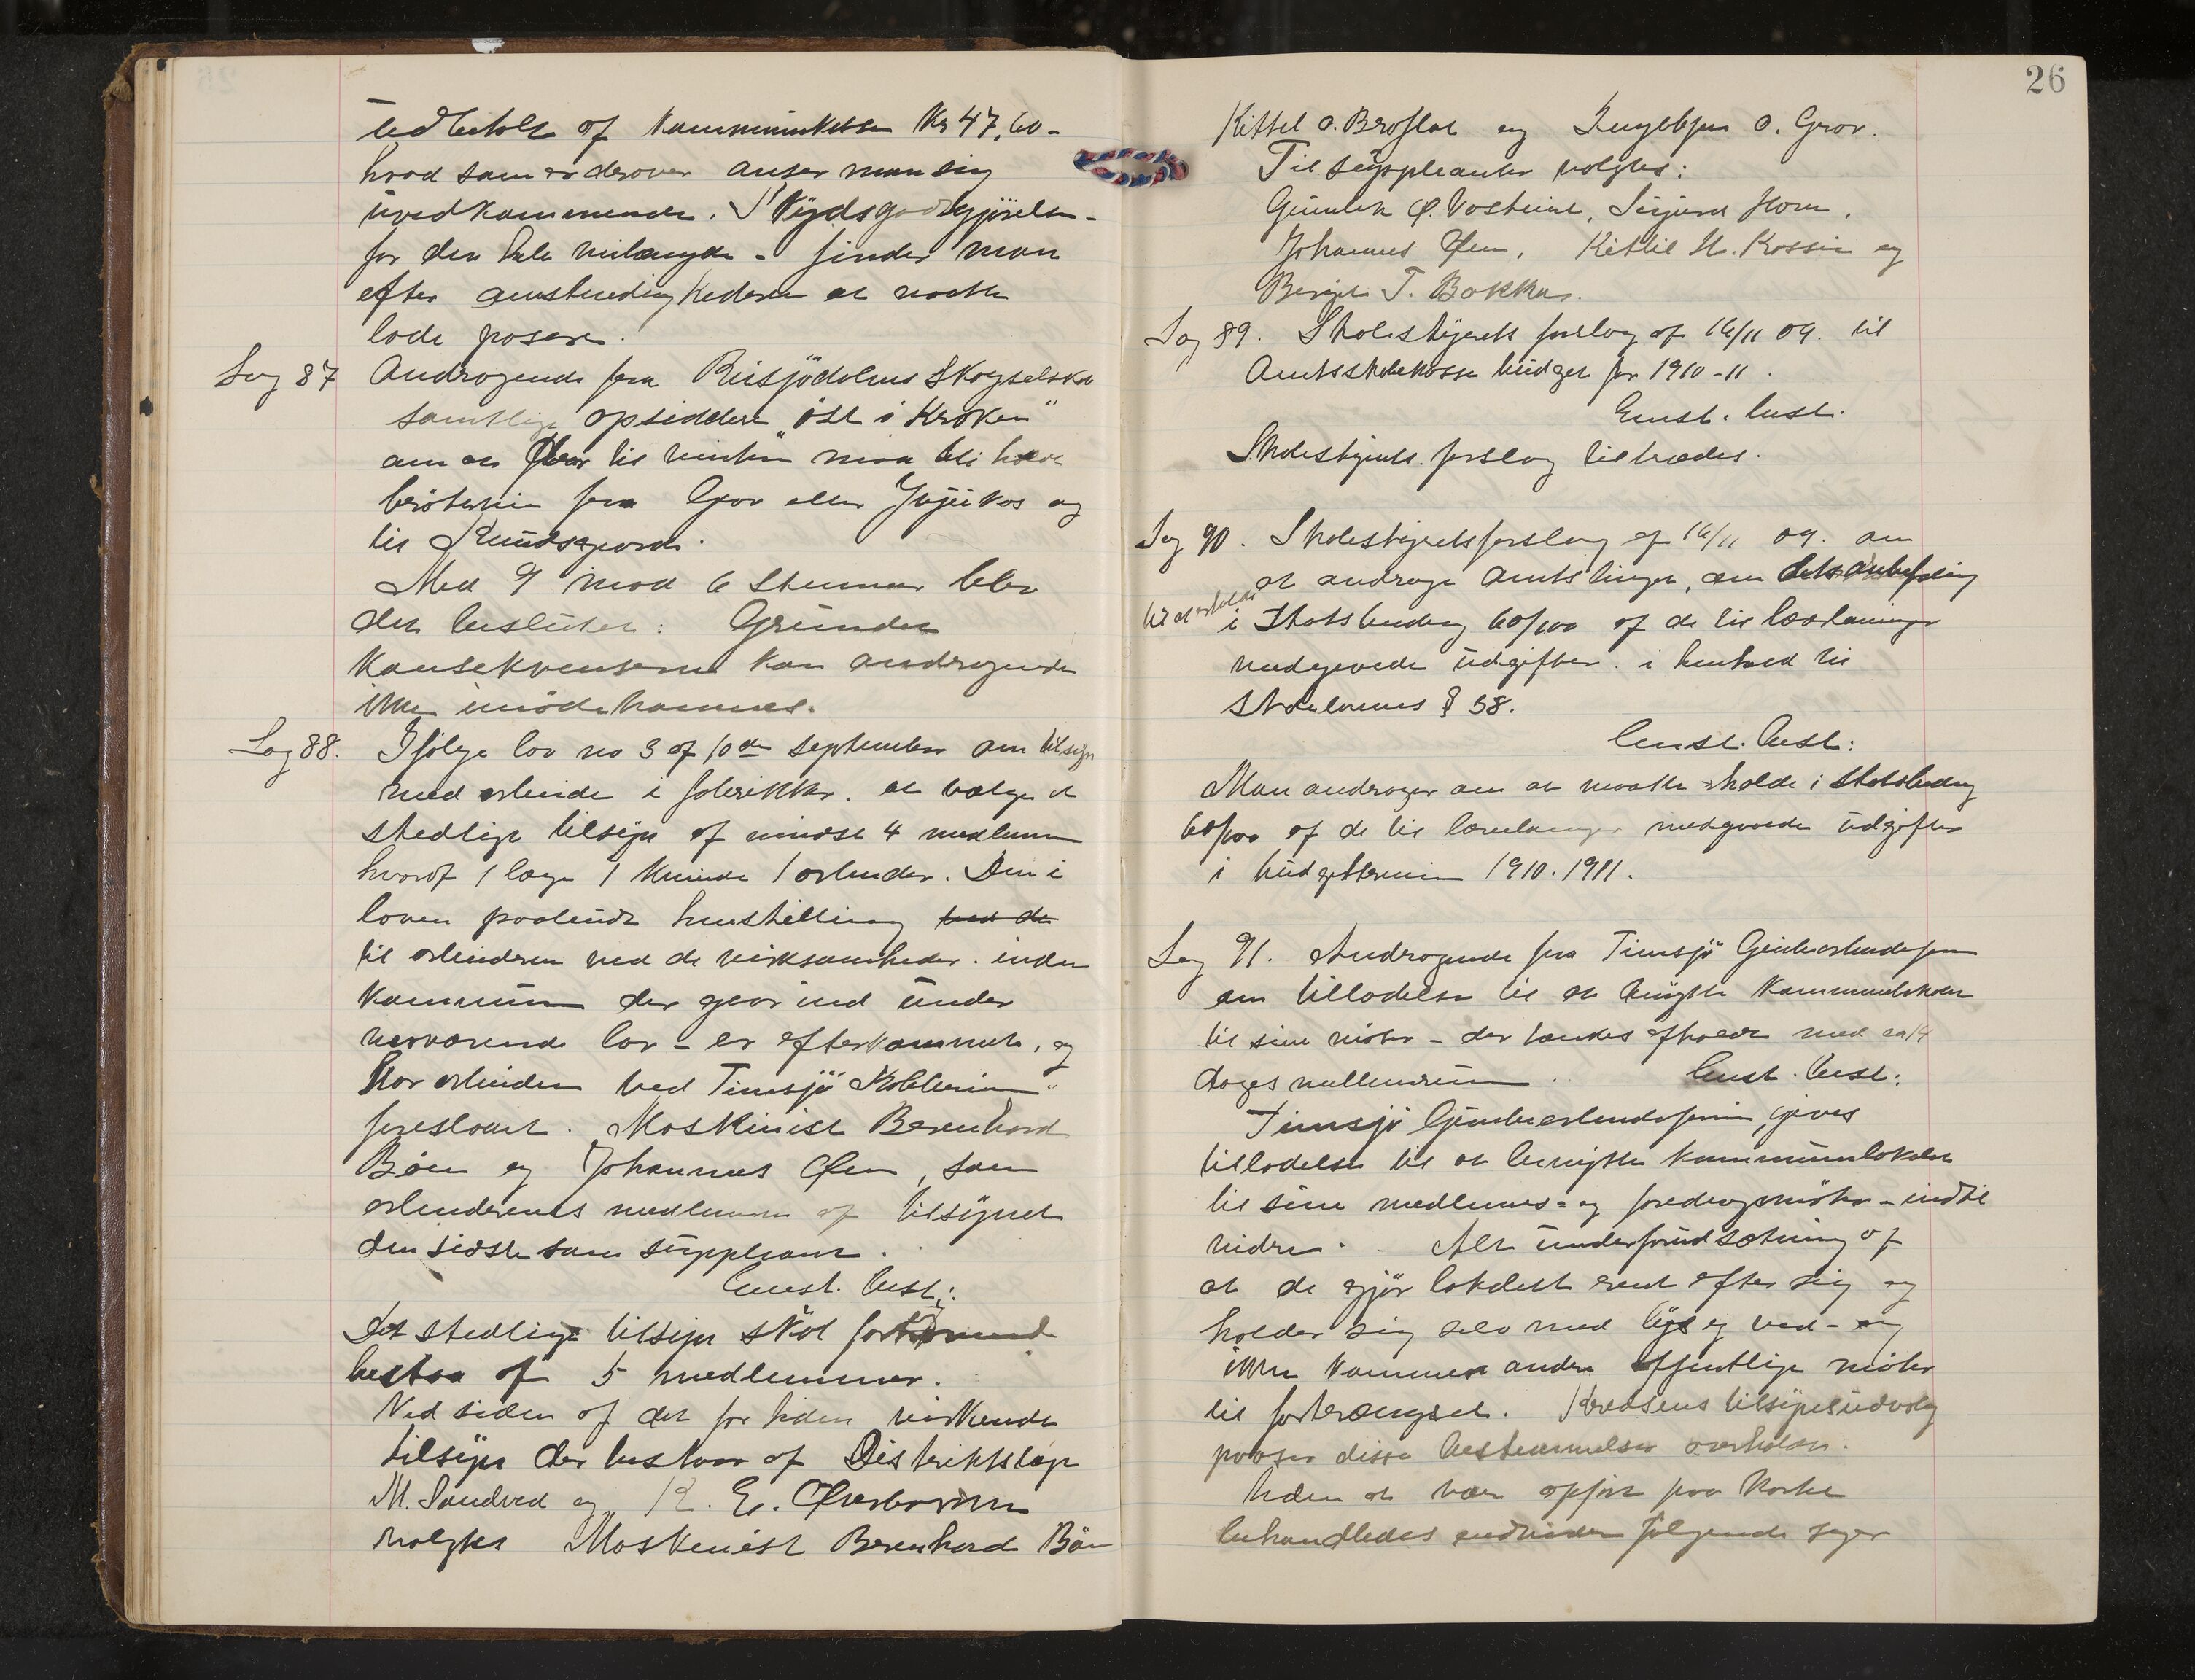 26
udbetalt af kommunekassen Kr 47,60 -
hvad som er derover anser man sig
uvedkommende. Skydsgodtgjörelse -
for den hele veilængde - finder man
efter omstendighederne at maatte
lade passere.
Sag 87 Andragende fra Skogselskab
samtlige opsiddere "öst i Kroken"
om at til vinter maa bli
fra Grov eller og
til
Med 9 mod 6 Stemmer blev
det besluttet: Grundet
Konsekvenserne kan andragende
ikke imödekommes.
Sag 88. Ifölge lov no 3 af 10de september om tilsyn
med arbeide i fabrikker. at vælge et
stedlige tilsyn af mindst 4 medlemmer
hvoraf 1 læge 1 kvinde 1 arbeider. Den i
loven paabudte henstilling ved de
til arbeideren ved de virksomheder. inden
kommunen der gaar ind under
nærværende lov - er efterkommet, og
har arbeiderne ved Tinnsjö
foreslaaet. Maskinist Berenhard
Böen og Johannes Öen, som
arbeidernes medlemmer af tilsynet
den sidste som suppleant.
Enst. Besl.:
Det stedlige tilsyn skal
bestaa af 5 medlemmer.
Ved siden af det for tiden virkende
tilsyn der bestaar af Distriktslæge
M. Sandved og K. E.
valgtes Maskinist Berenhard Böen
Kittel O. Broflat og O. Grov.
Til suppleanter valgtes:
Ø. Vosteinl, Horn,
Johannes Öen, Kittil H. og
T. Bakkus.
Sag 89. Skolestyrets forslag af 16/11 09. til
Amtsskolekasse budget for 1910-11.
Enst. besl.
Skolestyrets forslag tiltrædes.
Sag 90. Skolestyrets forslag af 16/11 09. om
at andrage Amtstinget, om dets anbefaling
til at erholde
i Statsbidrag 60/100 af de til lærelønninger
medgaaede udgifter. i henhold til
Skolelovens § 58.
Enst. Besl:
Man andrager om at maatte erholde i Statsbidrag
60/100 af de til lærelønninger medgaaede udgifter
i budgetterminen 1910.1911.
Sag 91. Andragende fra Tinnsjö
om tilladelse til at benytte kommunelokalet
til sine möter - der tænkes afholdt med ca 14
dages mellemrum. Enst. Besl:
Tinnsjö gives
tilladelse til at benytte kommunelokalet
til sine medlems- og foredragsmöter - indtil
videre. Alt under forudsætning af
at de gjör lokalet rent efter sig og
holder sig selv med lys og ved - og
ikke kommer andre offentlige möter
til fortrængsel. Kredsens tilsynsudvalg
paaser disse bestemmelser overholdt.
Uden at være opfört paa kartet
behandledes endvidere fölgende sager